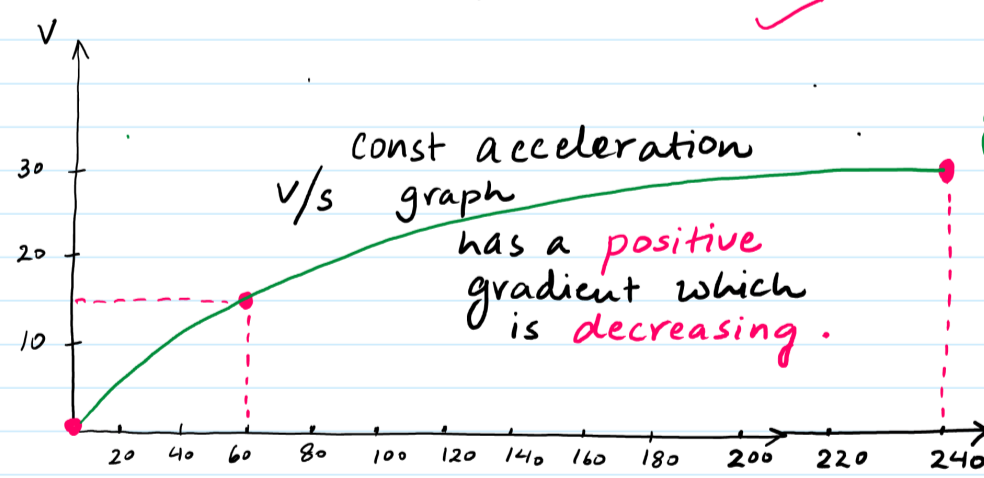 V
const acceleration
30
v/s graph
has a positive
20
gradient which
is decreasing.
10
20 40 60 80 100 120 140 160 180 200 220 240